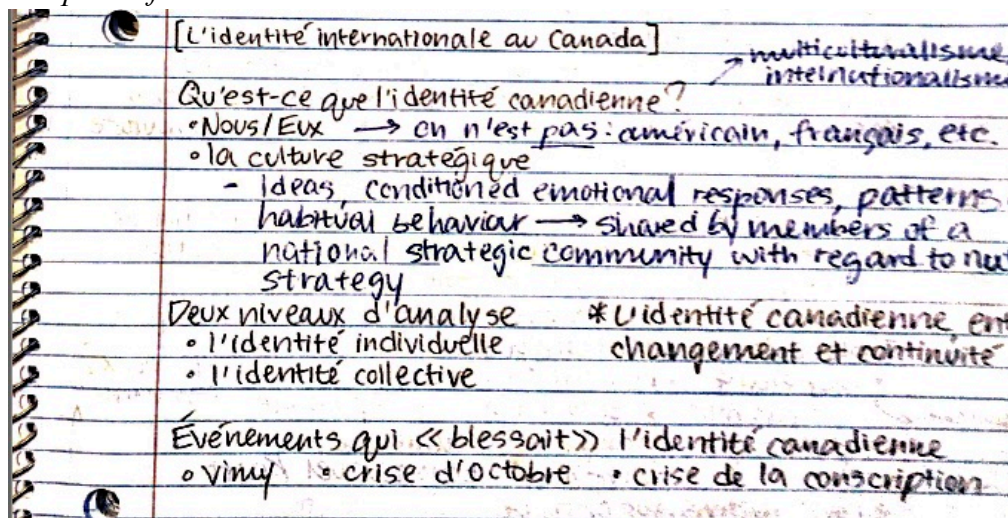 [L'identité internationale au Canada]
→ multiculturalisme,
internationalisme
Qu'est-ce que l'identité canadienne?
• Nous/Eux → on n'est pas: américain, français, etc.
• la culture stratégique
- ideas, conditioned emotional responses, patterns
habitual behaviour → shared by members of a
national strategic community with regard to
strategy
Deux niveaux d'analyse
* L'identité canadienne
changement et continuité
• l'identité individuelle
• l'identité collective
Événements qui << blessait >> l'identité canadienne
• Vimy • crise d'octobre • crise de la conscription